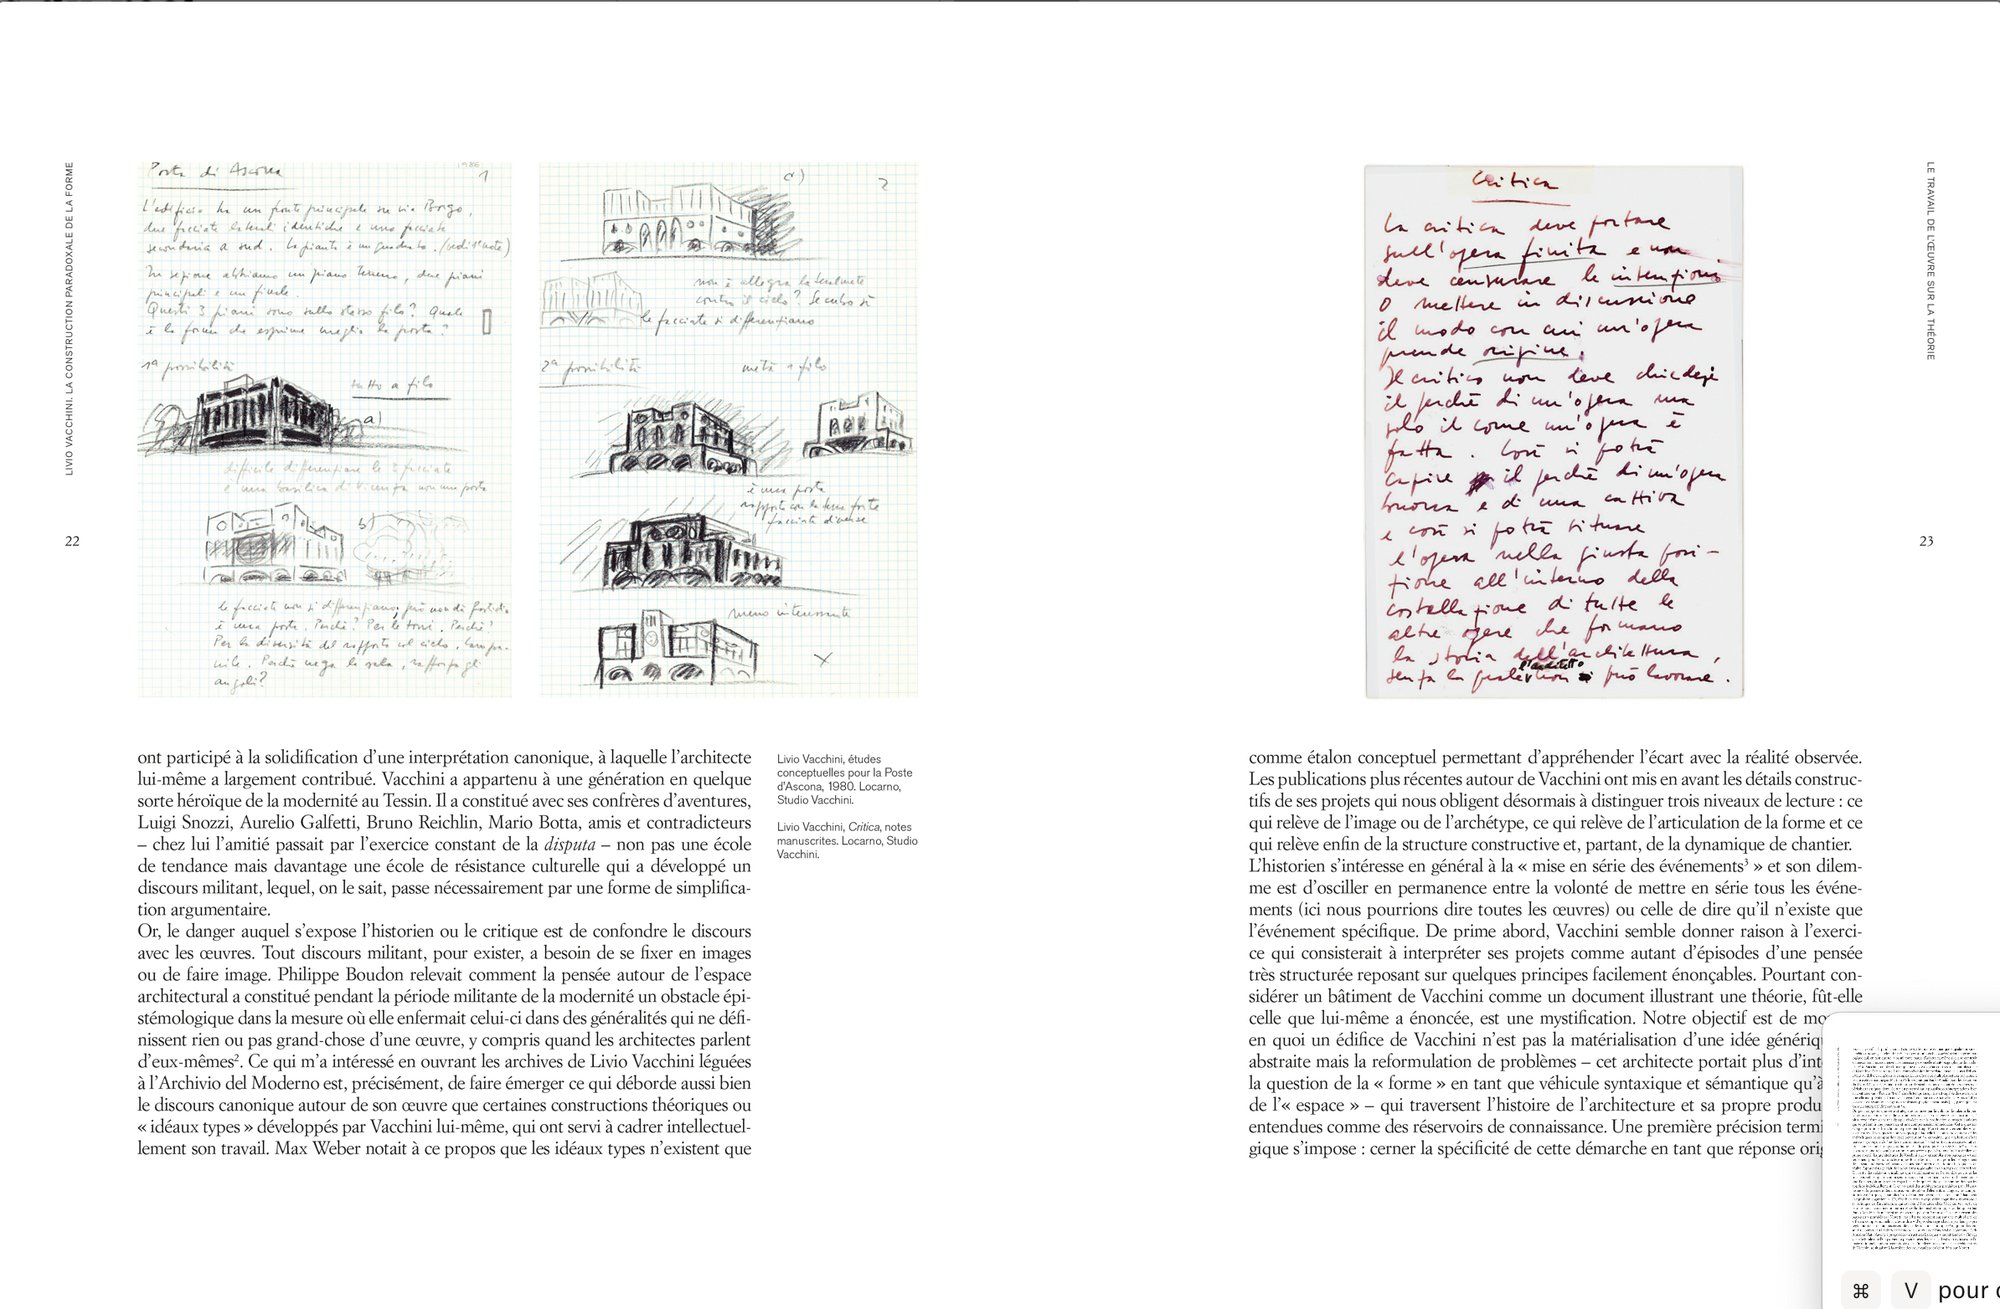 LIVIO VACCHINI. LA CONSTRUCTION PARADOXALE DE LA FORME
22
Posta di Ascona
1986
1
L'edificio ha un fronte principale su via Borgo,
due facciate laterali identiche e una facciata
secondaria a sud. La pianta è un quadrato.
In sezione abbiamo un piano terreno, due piani
principali e un finale.
Questi 3 piani sono sullo stesso filo? Quale
è la forma che esprime meglio la posta?
1ª possibilità
tutto a filo
a)
difficile differenziare le 3 facciate
è una basilica di Vicenza non una posta
b)
le facciate non si differenziano, però non dà fastidio
è una posta. Perché? Per le torri. Perché?
Per la diversità del rapporto col cielo, campa-
nile. Perché nega la sala, rafforza gli
angoli?
c)
2
non è allegra la
contro il cielo?
le facciate si differenziano
2ª possibilità
metà a filo
è una posta
rapporto con la terra forte
facciate diverse
meno interessante
ont participé à la solidification d'une interprétation canonique, à laquelle l'architecte
lui-même a largement contribué. Vacchini a appartenu à une génération en quelque
sorte héroïque de la modernité au Tessin. Il a constitué avec ses confrères d'aventures,
Luigi Snozzi, Aurelio Galfetti, Bruno Reichlin, Mario Botta, amis et contradicteurs
– chez lui l'amitié passait par l'exercice constant de la disputa – non pas une école
de tendance mais davantage une école de résistance culturelle qui a développé un
discours militant, lequel, on le sait, passe nécessairement par une forme de simplifica-
tion argumentaire.
Or, le danger auquel s'expose l'historien ou le critique est de confondre le discours
avec les œuvres. Tout discours militant, pour exister, a besoin de se fixer en images
ou de faire image. Philippe Boudon relevait comment la pensée autour de l'espace
architectural a constitué pendant la période militante de la modernité un obstacle épi-
stémologique dans la mesure où elle enfermait celui-ci dans des généralités qui ne défi-
nissent rien ou pas grand-chose d'une œuvre, y compris quand les architectes parlent
d'eux-mêmes². Ce qui m'a intéressé en ouvrant les archives de Livio Vacchini léguées
à l'Archivio del Moderno est, précisément, de faire émerger ce qui déborde aussi bien
le discours canonique autour de son œuvre que certaines constructions théoriques ou
« idéaux types » développés par Vacchini lui-même, qui ont servi à cadrer intellectuel-
lement son travail. Max Weber notait à ce propos que les idéaux types n'existent que
Livio Vacchini, études
conceptuelles pour la Poste
d'Ascona, 1980. Locarno,
Studio Vacchini.
Livio Vacchini, Critica, notes
manuscrites. Locarno, Studio
Vacchini.
Critica
La critica deve portare
sull'opera finita e non
deve censurare le intenzioni
o mettere in discussione
il modo con cui un'opera
prende origine.
Il critico non deve chiedersi
il perché di un'opera ma
solo il come un'opera è
fatta. Così si potrà
capire il perché di un'opera
buona e di una cattiva
e così si potrà situare
l'opera nella giusta posi-
zione all'interno della
costellazione di tutte le
altre opere che formano
la storia dell'architettura,
senza la quale l'architetto non può lavorare.
LE TRAVAIL DE L'ŒUVRE SUR LA THÉORIE
23
comme étalon conceptuel permettant d'appréhender l'écart avec la réalité observée.
Les publications plus récentes autour de Vacchini ont mis en avant les détails construc-
tifs de ses projets qui nous obligent désormais à distinguer trois niveaux de lecture : ce
qui relève de l'image ou de l'archétype, ce qui relève de l'articulation de la forme et ce
qui relève enfin de la structure constructive et, partant, de la dynamique de chantier.
L'historien s'intéresse en général à la « mise en série des événements³ » et son dilem-
me est d'osciller en permanence entre la volonté de mettre en série tous les événe-
ments (ici nous pourrions dire toutes les œuvres) ou celle de dire qu'il n'existe que
l'événement spécifique. De prime abord, Vacchini semble donner raison à l'exerci-
ce qui consisterait à interpréter ses projets comme autant d'épisodes d'une pensée
très structurée reposant sur quelques principes facilement énonçables. Pourtant con-
sidérer un bâtiment de Vacchini comme un document illustrant une théorie, fût-elle
celle que lui-même a énoncée, est une mystification. Notre objectif est de mo
en quoi un édifice de Vacchini n'est pas la matérialisation d'une idée génériq
abstraite mais la reformulation de problèmes – cet architecte portait plus d'int
la question de la « forme » en tant que véhicule syntaxique et sémantique qu'à
de l'« espace » – qui traversent l'histoire de l'architecture et sa propre produ
entendues comme des réservoirs de connaissance. Une première précision termi
gique s'impose : cerner la spécificité de cette démarche en tant que réponse ori
⌘ V pour